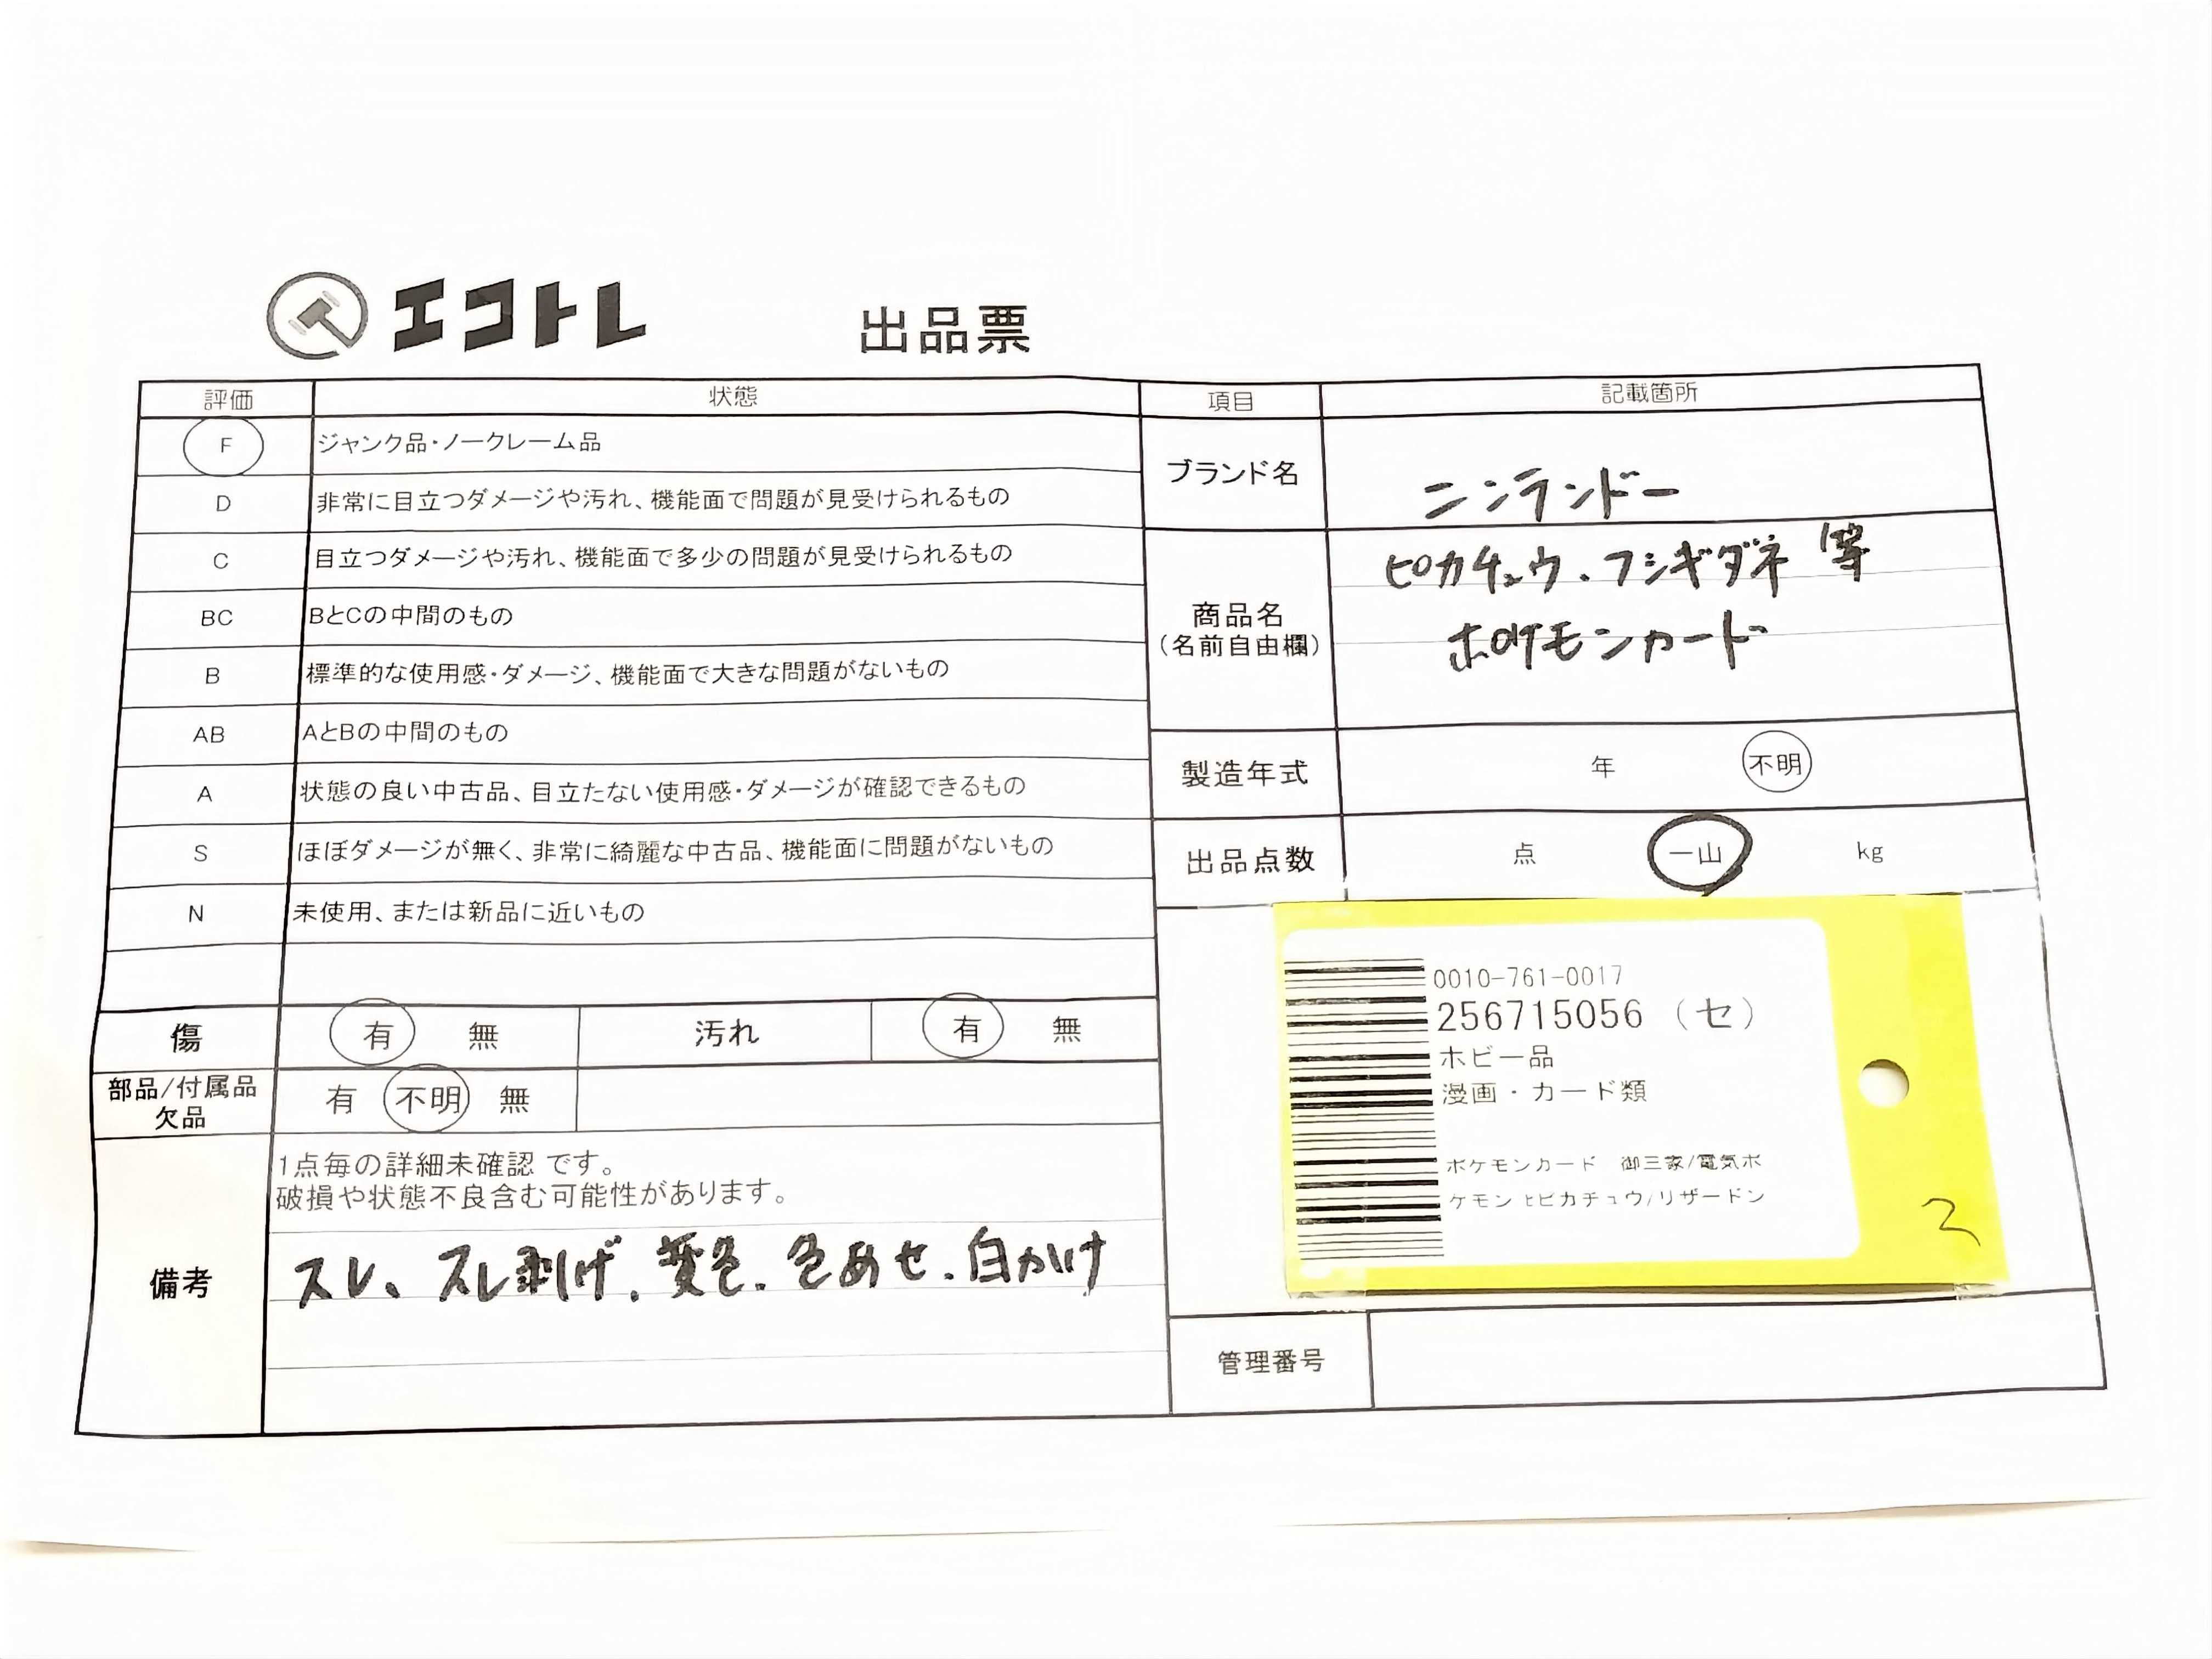 エコトレ 出品票
評価 状態 項目 記載箇所
F ジャンク品・ノークレーム品
D 非常に目立つダメージや汚れ、機能面で問題が見受けられるもの
C 目立つダメージや汚れ、機能面で多少の問題が見受けられるもの
BC BとCの中間のもの
B 標準的な使用感・ダメージ、機能面で大きな問題がないもの
AB AとBの中間のもの
A 状態の良い中古品、目立たない使用感・ダメージが確認できるもの
S ほぼダメージが無く、非常に綺麗な中古品、機能面に問題がないもの
N 未使用、または新品に近いもの
傷 有 無 汚れ 有 無
部品/付属品
欠品 有 不明 無
備考
1点毎の詳細未確認 です。
破損や状態不良含む可能性があります。
スレ、スレ剥げ.変色.色あせ.白かけ
ブランド名 ニンランドー
商品名
(名前自由欄)
ピカチュウ.フシギダネ 等
ポケモンカード
製造年式 年 不明
出品点数 点 一山 kg
0010-761-0017
256715056 (セ)
ホビー品
漫画・カード類
ポケモンカード 御三家/電気ポ
ケモン ヒピカチュウ/リザードン
2
管理番号